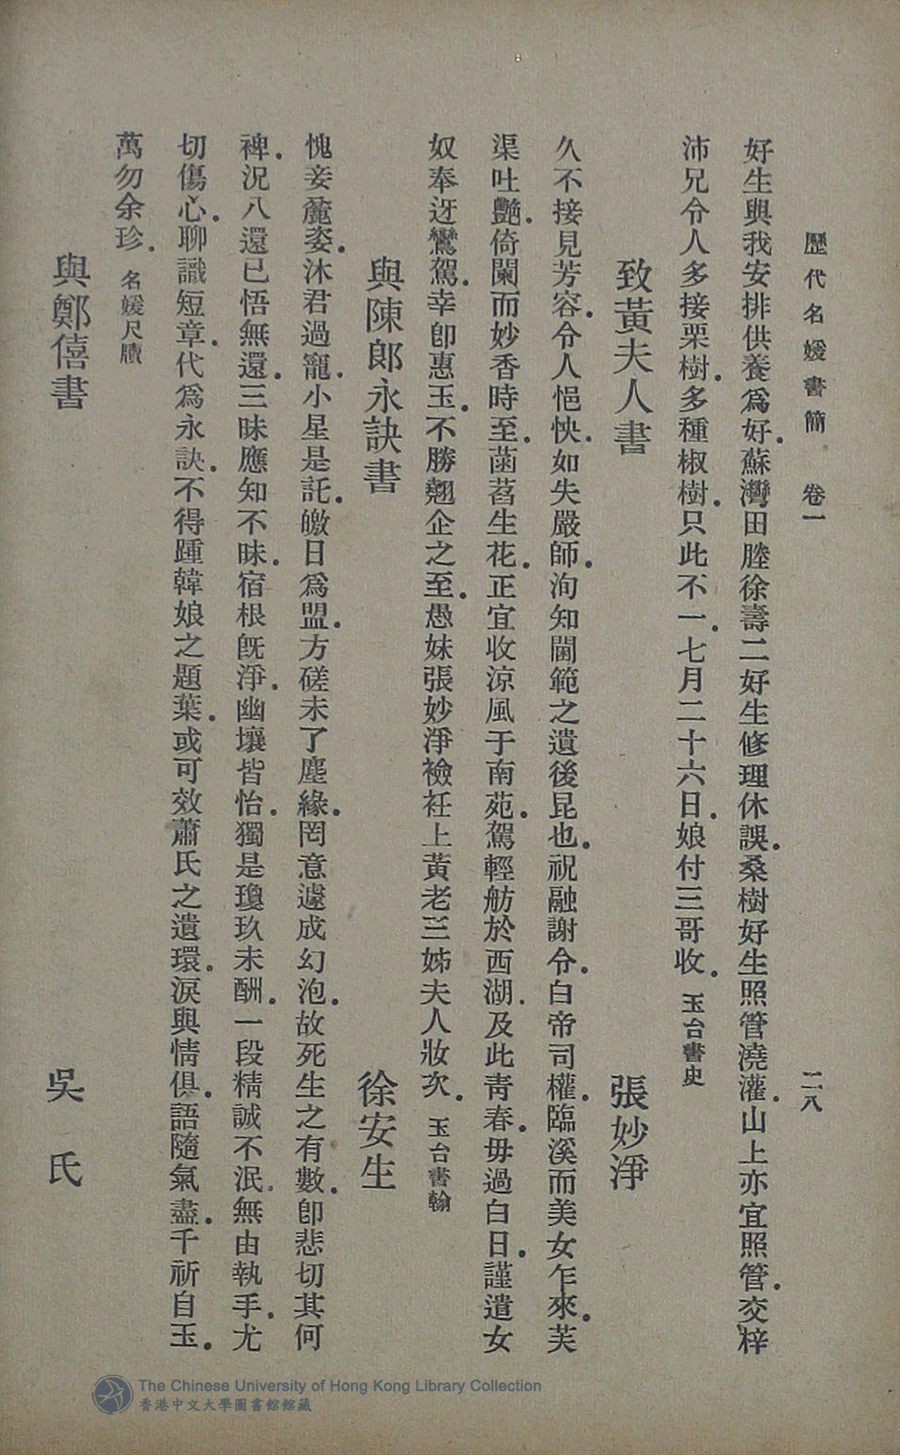 歷代名媛書簡　卷一　二八
好生與我安排供養爲好．蘇灣田塍徐壽二好生修理休誤．桑樹好生照管澆灌．山上亦宜照管．交梓
沛兄令人多接栗樹．多種椒樹．只此不一．七月二十六日．娘付三哥收．玉台書史
致黃夫人書　張妙淨
久不接見芳容．令人悒怏．如失嚴師．洵知閫範之遺後昆也．祝融謝令．白帝司權．臨溪而美女乍來．芙
渠吐艷．倚闌而妙香時至．菡萏生花．正宜收涼風于南苑．駕輕舫於西湖．及此靑春．毋過白日．謹遣女
奴奉迓鸞駕．幸卽惠玉．不勝翹企之至．愚妹張妙淨襝衽上黃老三姊夫人妝次．玉台書翰
與陳郎永訣書　徐安生
愧妾麄姿．沐君過寵．小星是託．皦日爲盟．方磋未了塵緣．罔意遽成幻泡．故死生之有數．卽悲切其何
裨．況八還已悟無還．三昧應知不昧．宿根旣淨．幽壤皆怡．獨是瓊玖未酬．一段精誠不泯．無由執手．尤
切傷心．聊識短章．代爲永訣．不得踵韓娘之題葉．或可效蕭氏之遺環．淚與情俱．語隨氣盡．千祈自玉．
萬勿余珍．名媛尺牘
與鄭僖書　吳氏
The Chinese University of Hong Kong Library Collection
香港中文大學圖書館館藏